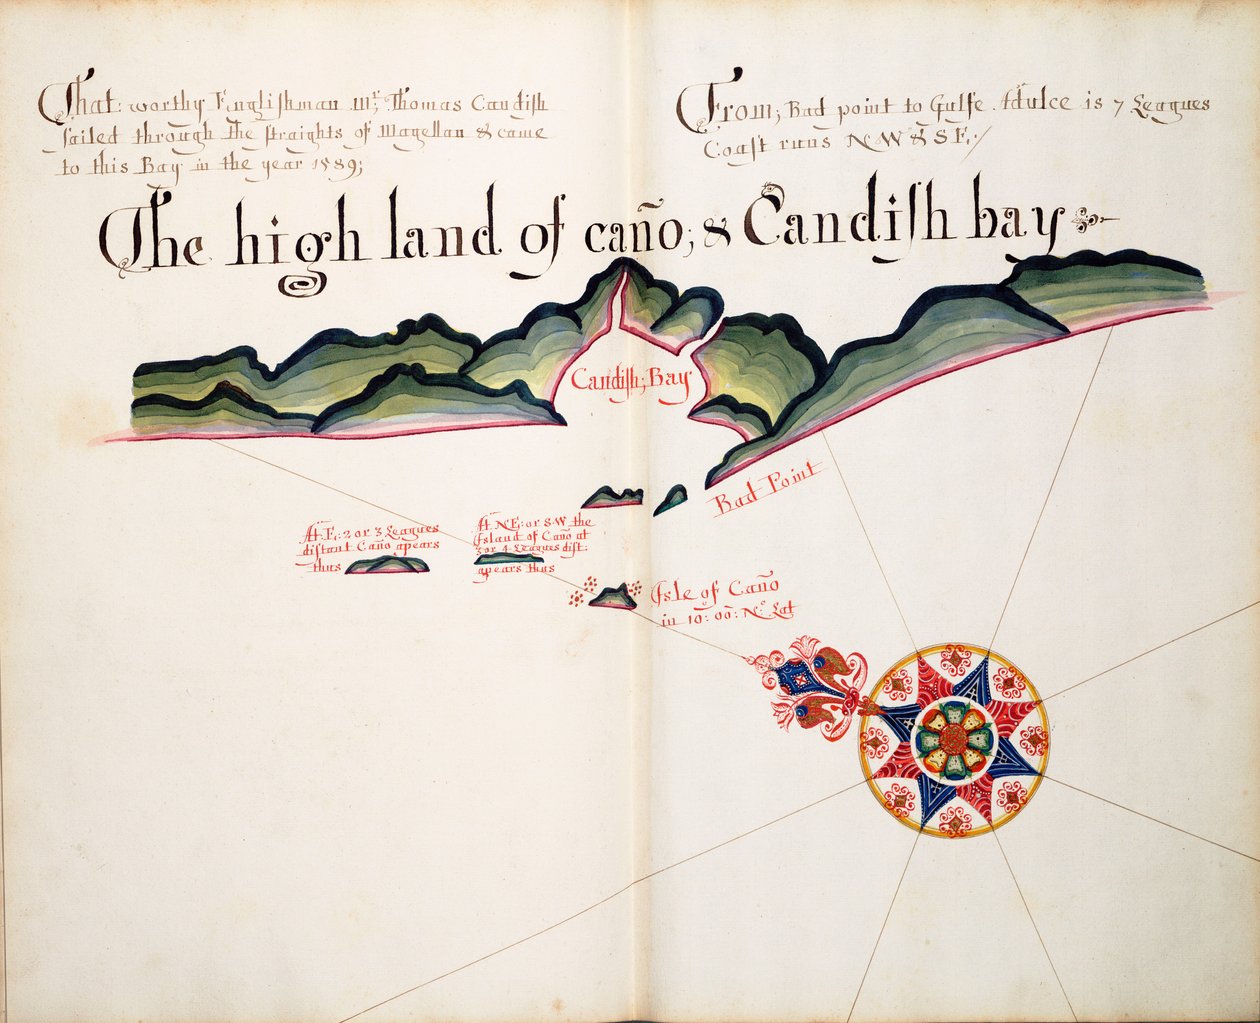 That: worthy Englishman Mr. Thomas Candish
sailed through the straights of Magellan & came
to this Bay in the year 1589;
From; Bad point to Gulfe. Adulce is 7 Leagues
Coast runs N W & S E:/
The high land of caño; & Candish bay
Candish; Bay
Bad Point
At E: 2 or 3 Leagues
distant Caño apears
thus
At N E: or S W the
Island of Caño at
3 or 4 Leagues dist:
apears thus
Isle of Caño
in 10: 00: No. Lat